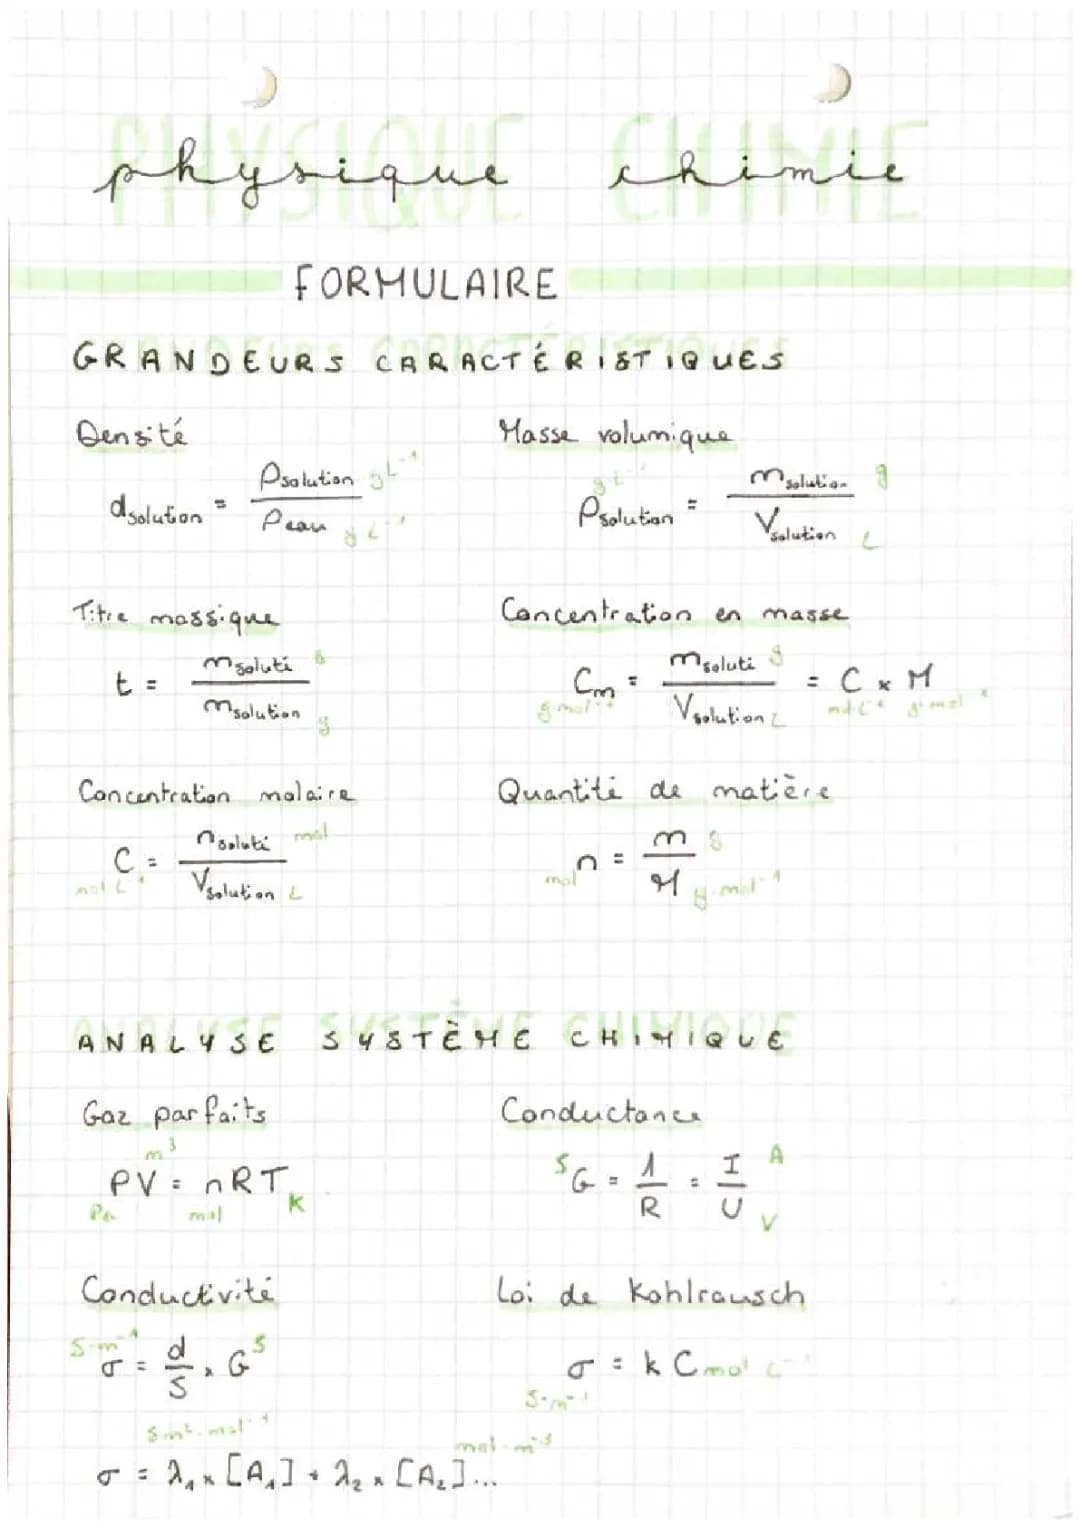 physique chimie
FORMULAIRE
GRANDEURS CARACTÉRISTIQUES
Densité
d solution = ρ solution g L⁻¹ / ρ eau g L⁻¹
Masse volumique
g L⁻¹ ρ solution = m solution g / V solution L
Titre massique
t = m soluté g / m solution g
Concentration en masse
Cm g·mol⁻¹ = m soluté g / V solution L = C × M mol L⁻¹ g·mol⁻¹
Concentration molaire
C mol L⁻¹ = n soluté mol / V solution L
Quantité de matière
n mol = m g / M g·mol⁻¹
ANALYSE SYSTÈME CHIMIQUE
Gaz parfaits
m³
PV = nRT
Pa mol K
Conductance
S G = 1 / R = I A / U V
Conductivité
S·m⁻¹ σ = d / S × G S
Loi de Kohlrausch
σ = k C mol L⁻¹
S·m⁻¹
S m² mol⁻¹ mol·m⁻³
σ = λ₁ × [A₁] + λ₂ × [A₂]...